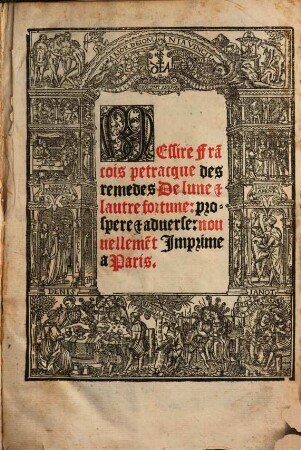 AMOR DEI OMNIA VINCIT
Messire Frã
cois petracque des
remedes De lune &
lautre fortune: pro-
spere & adverse: nou
uellemẽt Imprime
a Paris.
DENIS
IANOT